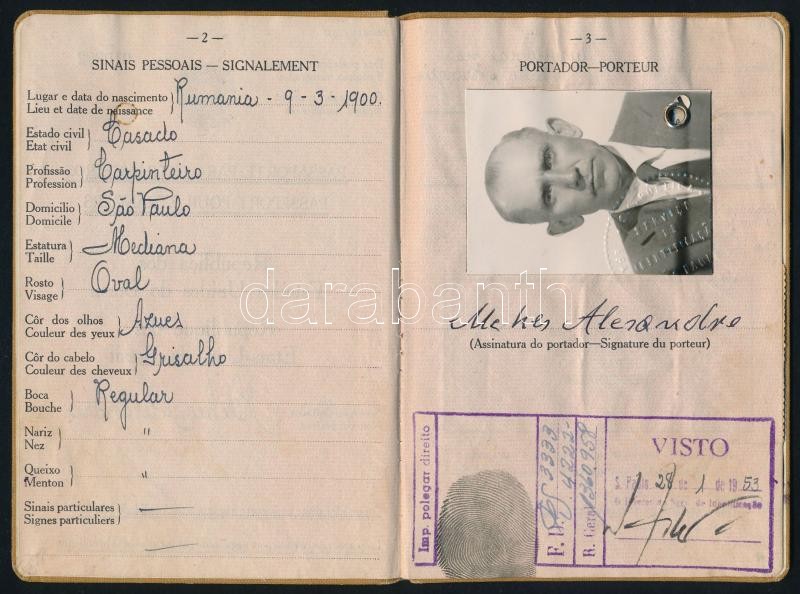 —2—
SINAIS PESSOAIS — SIGNALEMENT
Lugar e data do nascimento
Lieu et date de naissance
Rumania - 9 - 3 - 1900.
Estado civil
Etat civil
Casado
Profissão
Profession
Carpinteiro
Domicilio
Domicile
São Paulo
Estatura
Taille
Mediana
Rosto
Visage
Oval
Côr dos olhos
Couleur des yeux
Azues
Côr do cabelo
Couleur des cheveux
Grisalho
Boca
Bouche
Regular
Nariz
Nez
"
Queixo
Menton
"
Sinais particulares
Signes particuliers
—
—
—3—
PORTADOR—PORTEUR
Alexandre
(Assinatura do portador—Signature du porteur)
Imp. polegar direito
F. D. 3333
4222
R. Geral 1360958
VISTO
S. Paulo, 28 de 1 de 1953
de Identificação
darabanth